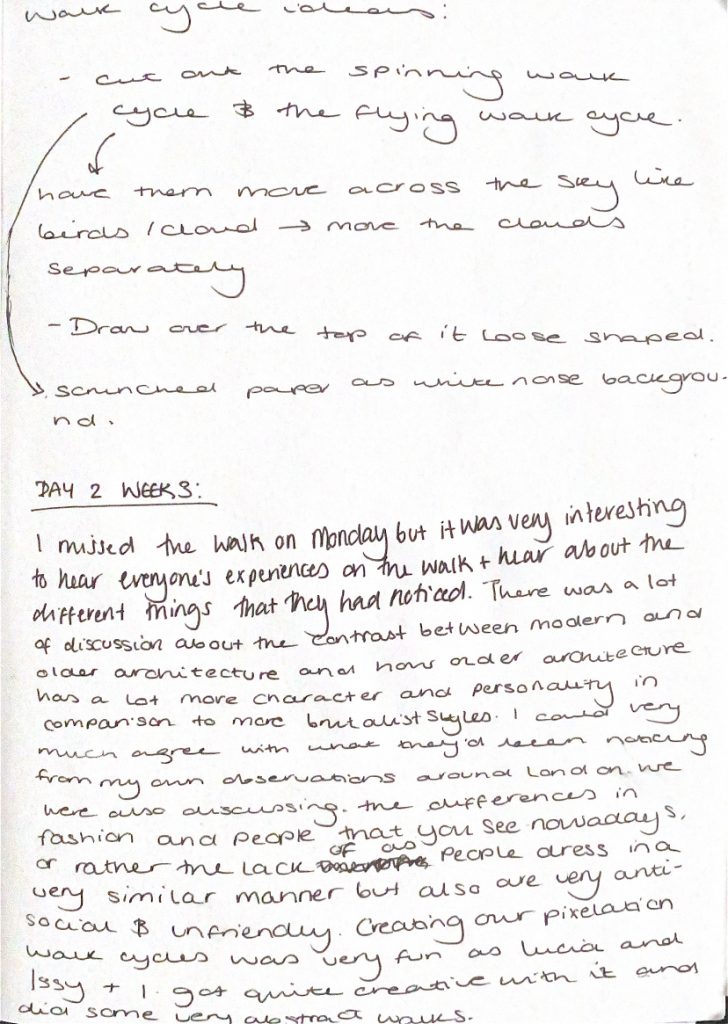 walk cycle ideas:
- cut out the spinning walk
cycle & the flying walk cycle.
have them move across the sky like
birds / cloud → move the clouds
separately
- Draw over the top of it loose shaped.
scrunched paper as white noise backgrou-
nd.
DAY 2 WEEK 3:
I missed the walk on Monday but it was very interesting
to hear everyone's experiences on the walk + hear about the
different things that they had noticed. There was a lot
of discussion about the contrast between modern and
older architecture and how older architecture
has a lot more character and personality in
comparison to more brutalist styles. I could very
much agree with what they'd been noticing
from my own observations around London. We
were also discussing the differences in
fashion and people that you see nowadays,
or rather the lack of as people dress in a
very similar manner but also are very anti-
social & unfriendly. Creating our pixelation
walk cycles was very fun as lucia and
Issy + I got quite creative with it and
did some very abstract walks.